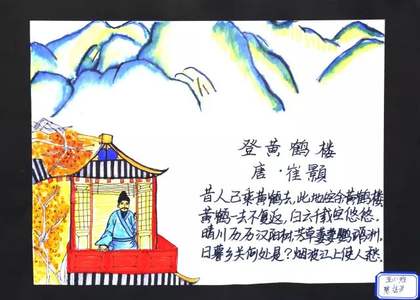 登黄鹤楼
唐·崔颢
昔人已乘黄鹤去,此地空余黄鹤楼
黄鹤一去不复返,白云千载空悠悠.
晴川历历汉阳树,芳草萋萋鹦鹉洲.
日暮乡关何处是?烟波江上使人愁.